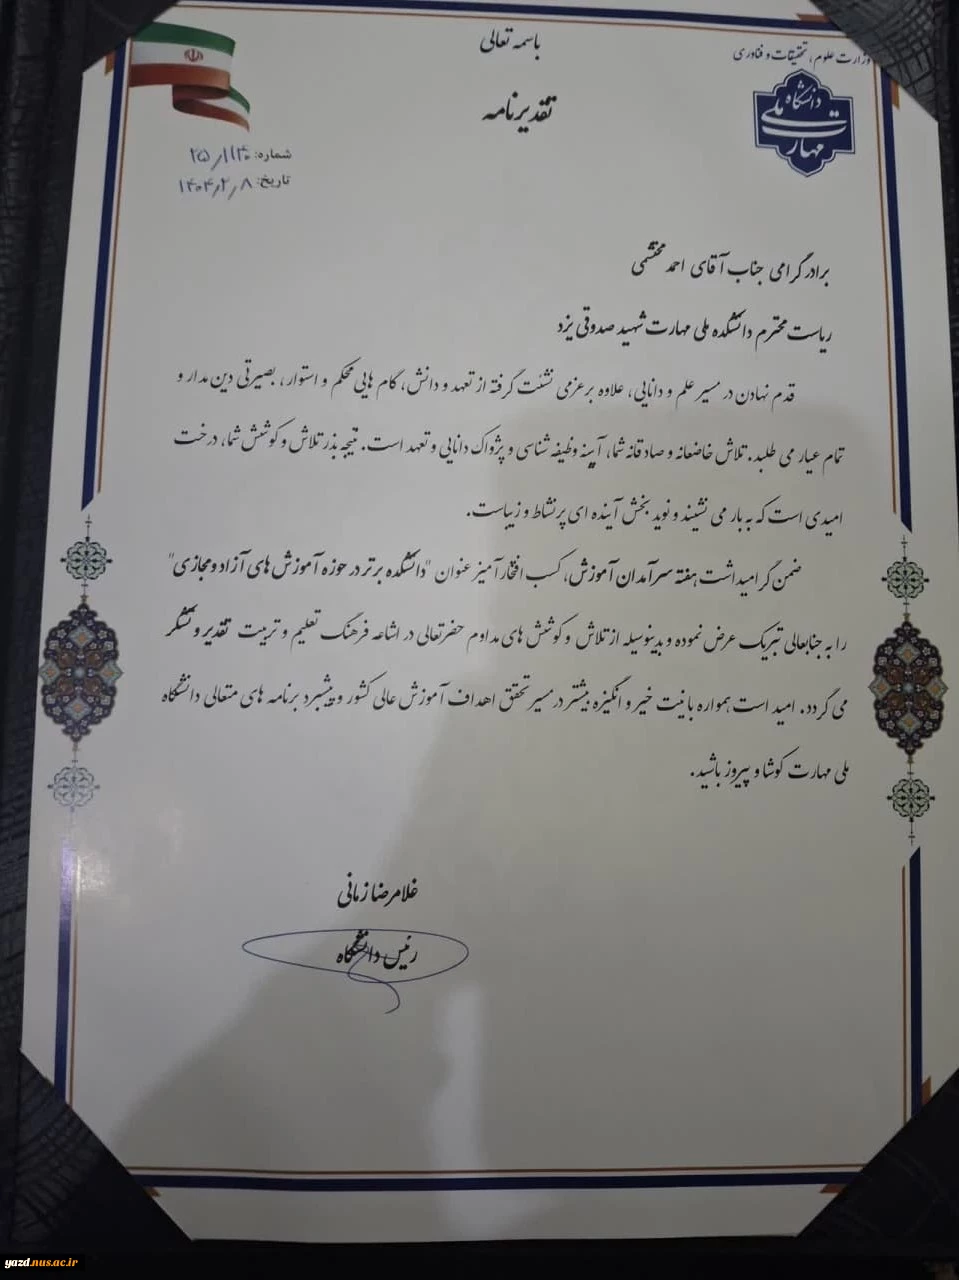 باسمه تعالی
وزارت علوم، تحقیقات و فناوری
تقدیرنامه
دانشگاه ملی مهارت
شماره: ۲۵/۱۱۴۰
تاریخ: ۱۴۰۴/۲/۸
برادر گرامی جناب آقای احمد محتشمی
ریاست محترم دانشکده ملی مهارت شهید صدوقی یزد
قدم نهادن در مسیر علم و دانایی، علاوه بر عزمی نشئت گرفته از تعهد و دانش، گام هایی محکم و استوار، بصیرتی دین مدار و
تمام عیار می طلبد. تلاش خاضعانه و صادقانه شما، آیینه وظیفه شناسی و پژواک دانایی و تعهد است. نتیجه بذر تلاش و کوشش شما، درخت
امیدی است که به بار می نشیند و نوید بخش آینده ای پرنشاط و زیباست.
ضمن گرامیداشت هفته سرآمدان آموزش، کسب افتخارآمیز عنوان "دانشکده برتر در حوزه آموزش های آزاد و مجازی"
را به جنابعالی تبریک عرض نموده و بدینوسیله از تلاش و کوشش های مداوم حضرتعالی در اشاعه فرهنگ تعلیم و تربیت تقدیر و تشکر
می گردد. امید است همواره با نیت خیر و انگیزه بیشتر در مسیر تحقق اهداف آموزش عالی کشور و پیشبرد برنامه های متعالی دانشگاه
ملی مهارت کوشا و پیروز باشید.
غلامرضا زمانی
رئیس دانشگاه
yazd.nus.ac.ir